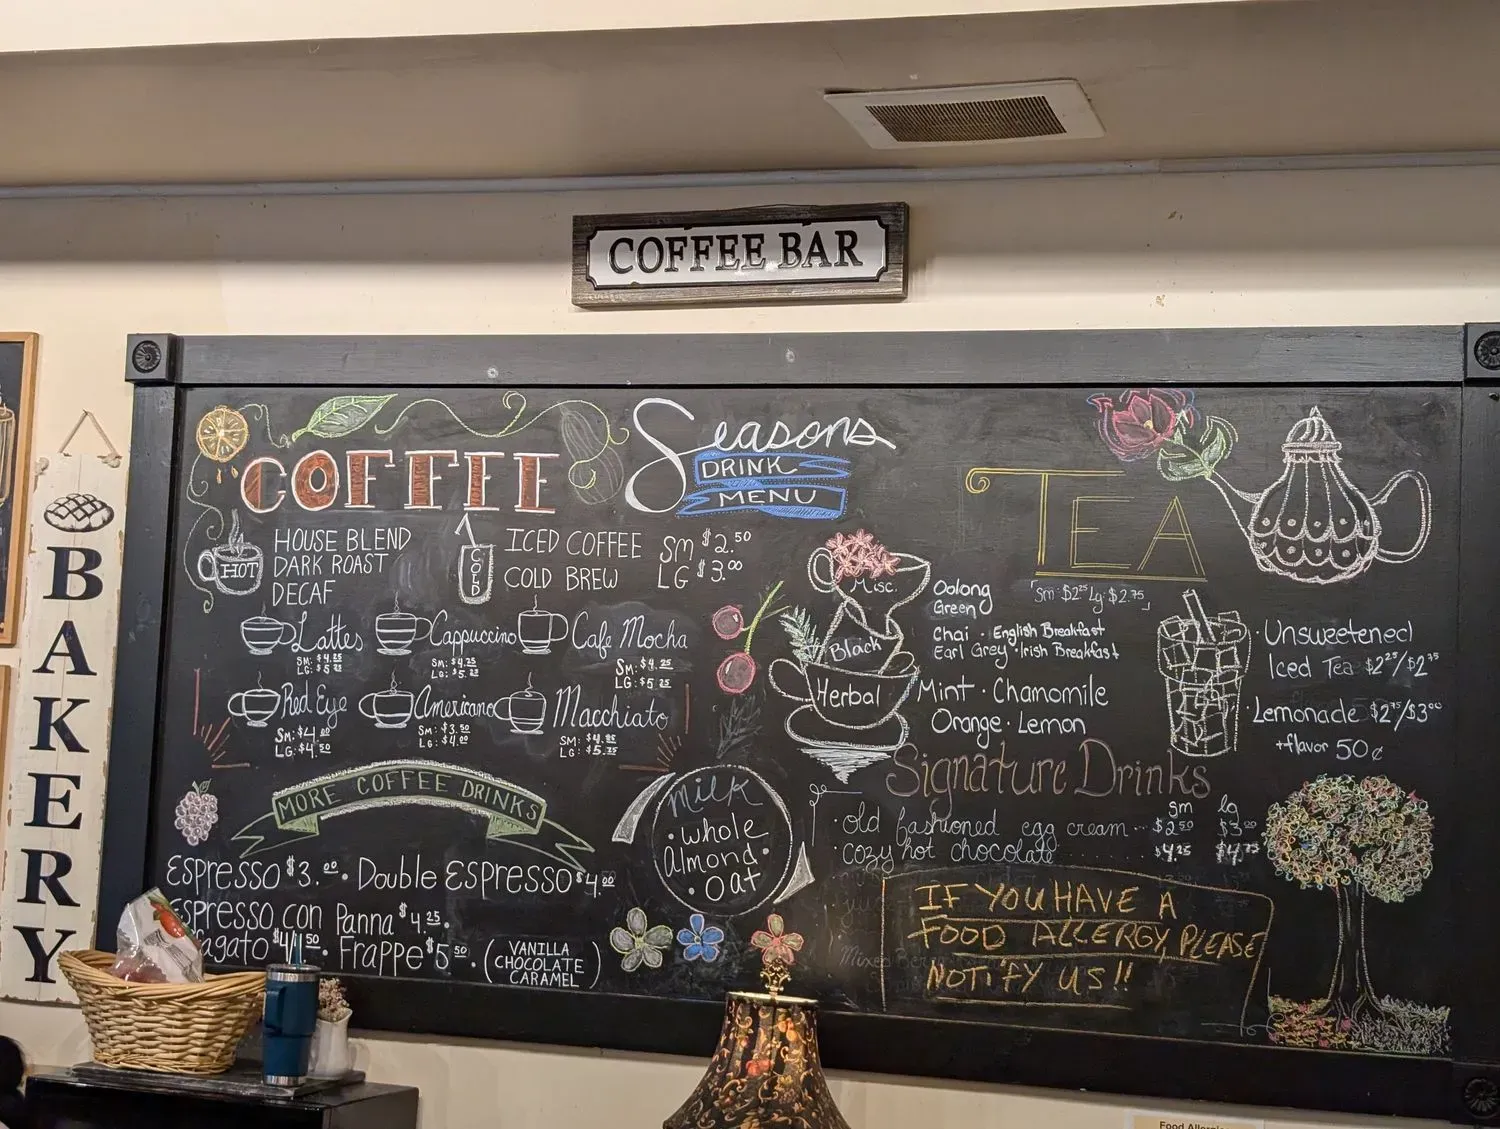 COFFEE BAR
BAKERY
COFFEE
Seasons
DRINK
MENU
HOT
HOUSE BLEND
DARK ROAST
DECAF
COLD
ICED COFFEE
COLD BREW
SM $2.50
LG $3.00
Lattes
SM: $4.25
LG: $5.25
Cappuccino
SM: $4.25
LG: $5.25
Cafe Mocha
SM: $4.25
LG: $5.25
Red Eye
SM: $4.00
LG: $4.50
Americano
SM: $3.50
LG: $4.00
Macchiato
SM: $4.25
LG: $5.25
MORE COFFEE DRINKS
Espresso $3.00 · Double Espresso $4.00
Espresso con Panna $4.25 ·
· Frappe $5.50 · (VANILLA
CHOCOLATE
CARAMEL)
Milk
· whole
Almond ·
· oat
TEA
Sm: $2.25 Lg: $2.75
Misc.
Oolong
Green
Black
Chai · English Breakfast
Earl Grey · Irish Breakfast
Herbal
Mint · Chamomile
Orange · Lemon
· Unsweetened
Iced Tea
· Lemonade
+flavor 50¢
Signature Drinks
sm lg
· old fashioned egg cream $2.50 $3.00
· cozy hot chocolate $4.25 $4.75
IF YOU HAVE A
FOOD ALLERGY, PLEASE
NOTIFY US!!